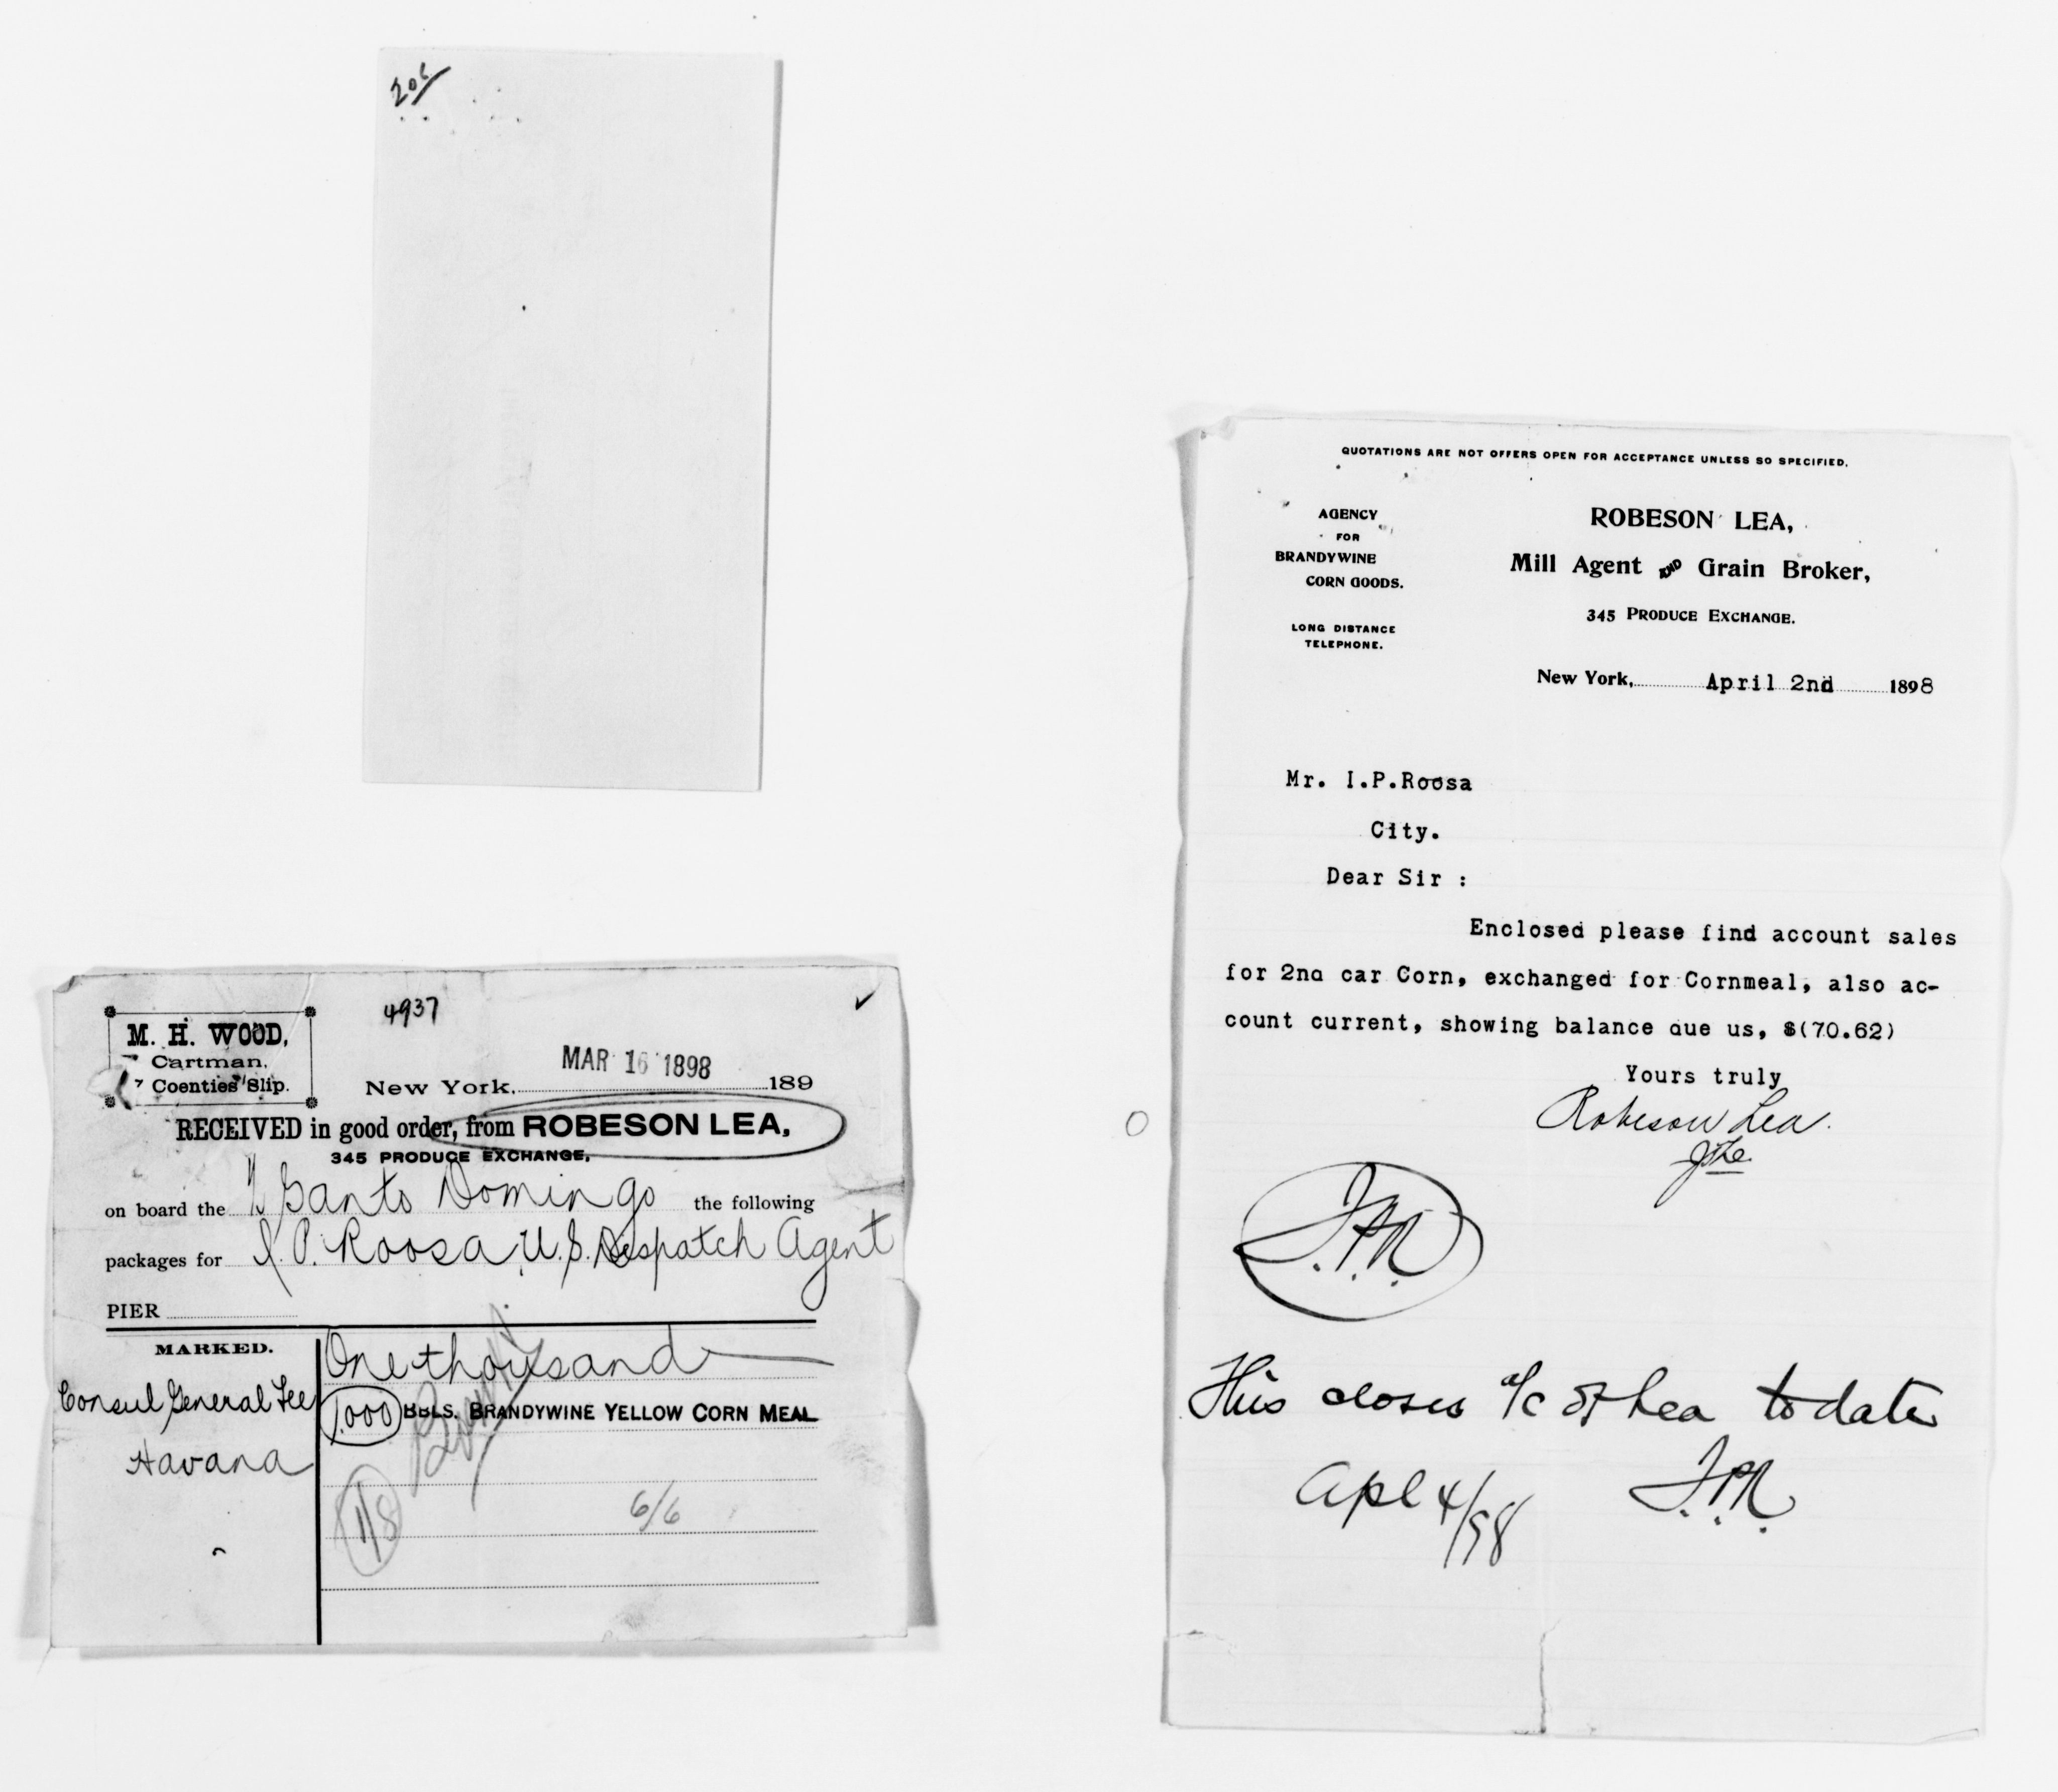 206
4937
M. H. WOOD,
Cartman,
7 Coenties Slip.
MAR 16 1898
New York, 189
RECEIVED in good order, from ROBESON LEA,
345 PRODUCE EXCHANGE,
on board the Santo Domingo the following
packages for I. P. Roosa U. S. Despatch Agent
PIER
MARKED.
One thousand
Consul General Lee
1.000 BBLS. BRANDYWINE YELLOW CORN MEAL
Havana
118
6/6
QUOTATIONS ARE NOT OFFERS OPEN FOR ACCEPTANCE UNLESS SO SPECIFIED.
AGENCY
FOR
BRANDYWINE
CORN GOODS.
LONG DISTANCE
TELEPHONE.
ROBESON LEA,
Mill Agent AND Grain Broker,
345 PRODUCE EXCHANGE.
New York, April 2nd 1898
Mr. I.P.Roosa
City.
Dear Sir :
Enclosed please find account sales
for 2nd car Corn, exchanged for Cornmeal, also ac-
count current, showing balance due us, $(70.62)
Yours truly
Robeson Lea.
I.P.R.
This closes a/c of Lea to date
Apl 4/98 I.P.R.